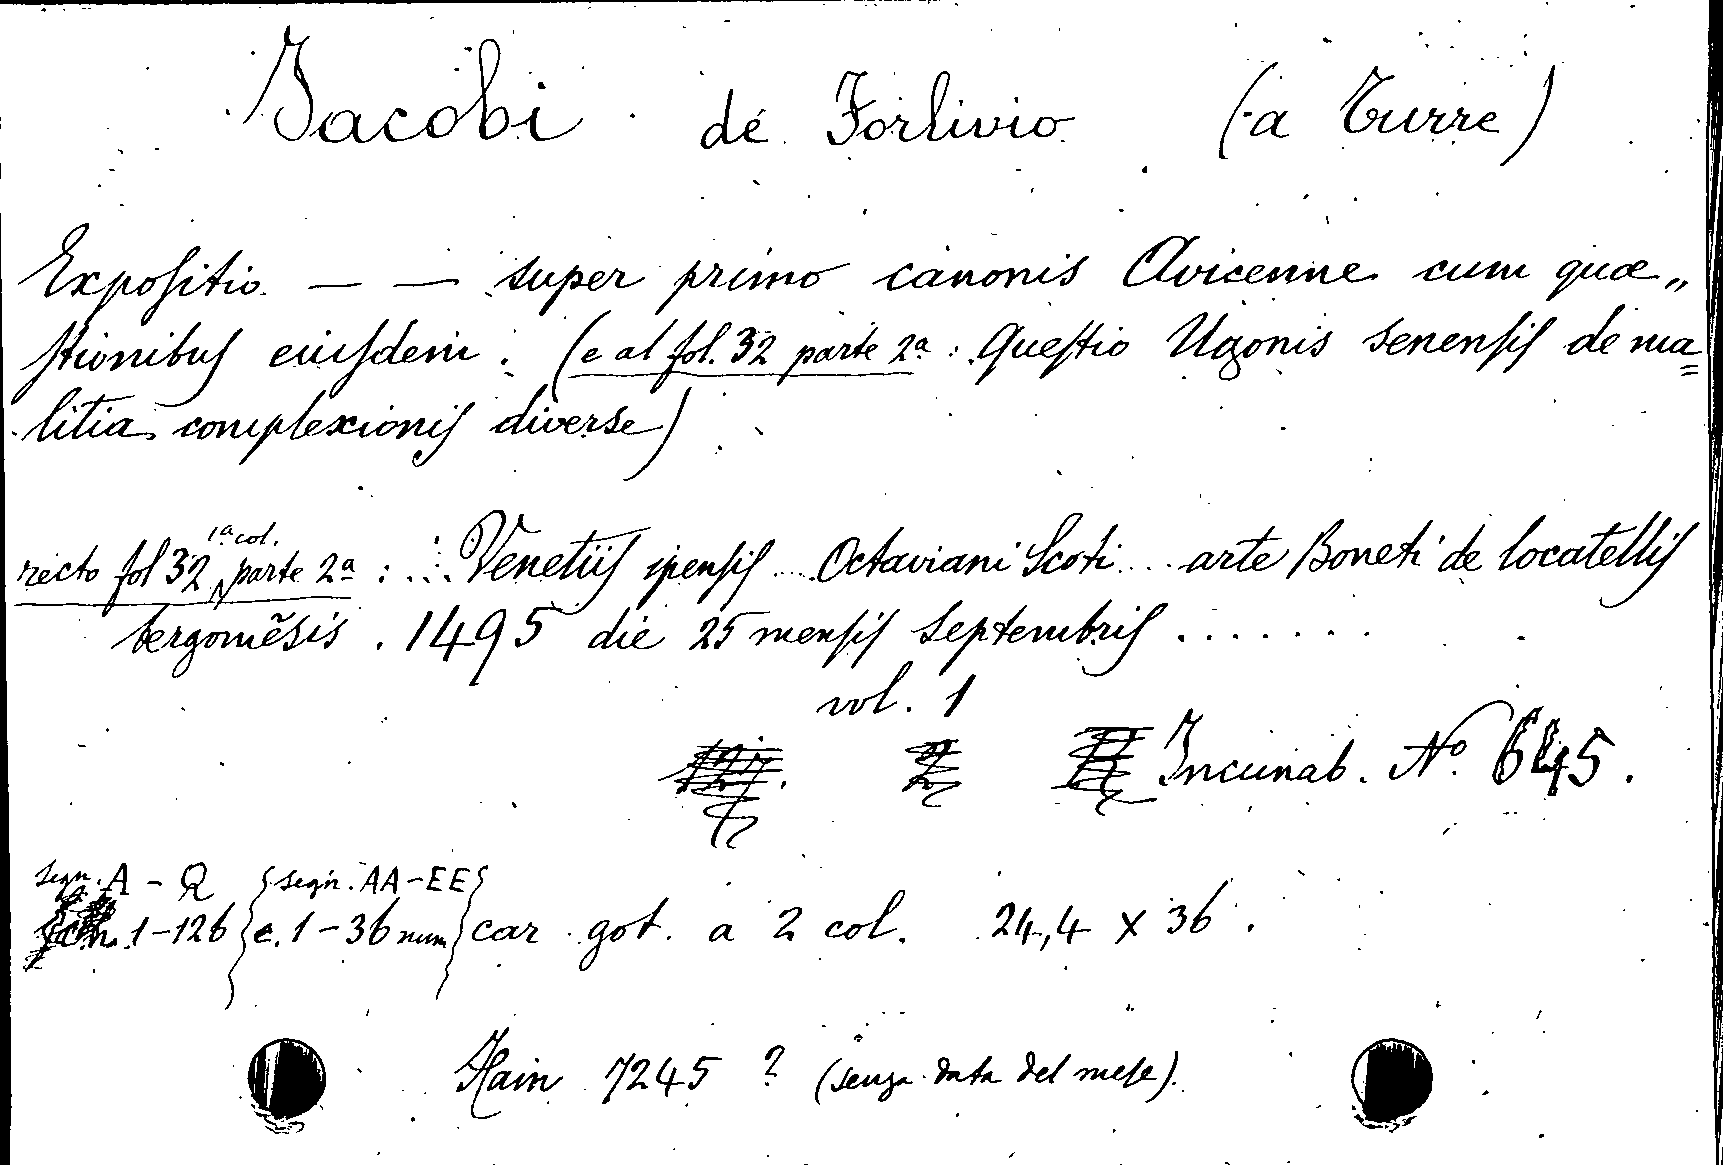 Jacobi de Forlivio (a Turre)
Expoſitio — — super primo canonis Avicenne cum quæ„
ſtionibuſ eiuſdem. (e al fol. 32 parte 2ª: Queſtio Ugonis senenſiſ de ma=
litia complexioniſ diverse)
recto fol 32 1ª col. parte 2ª: ..... Venetiiſ ipenſiſ .... Octaviani Scoti .... arte Boneti de locatelliſ
bergomẽsis . 1495 die 25 menſiſ septembriſ .......
vol. 1
Incunab. Nº 645.
segn. A - Q {segn. AA-EE}
1-126 } c. 1-36 num } car got. a 2 col. 24,4 X 36.
Hain 7245 ? (senza data del meſe).